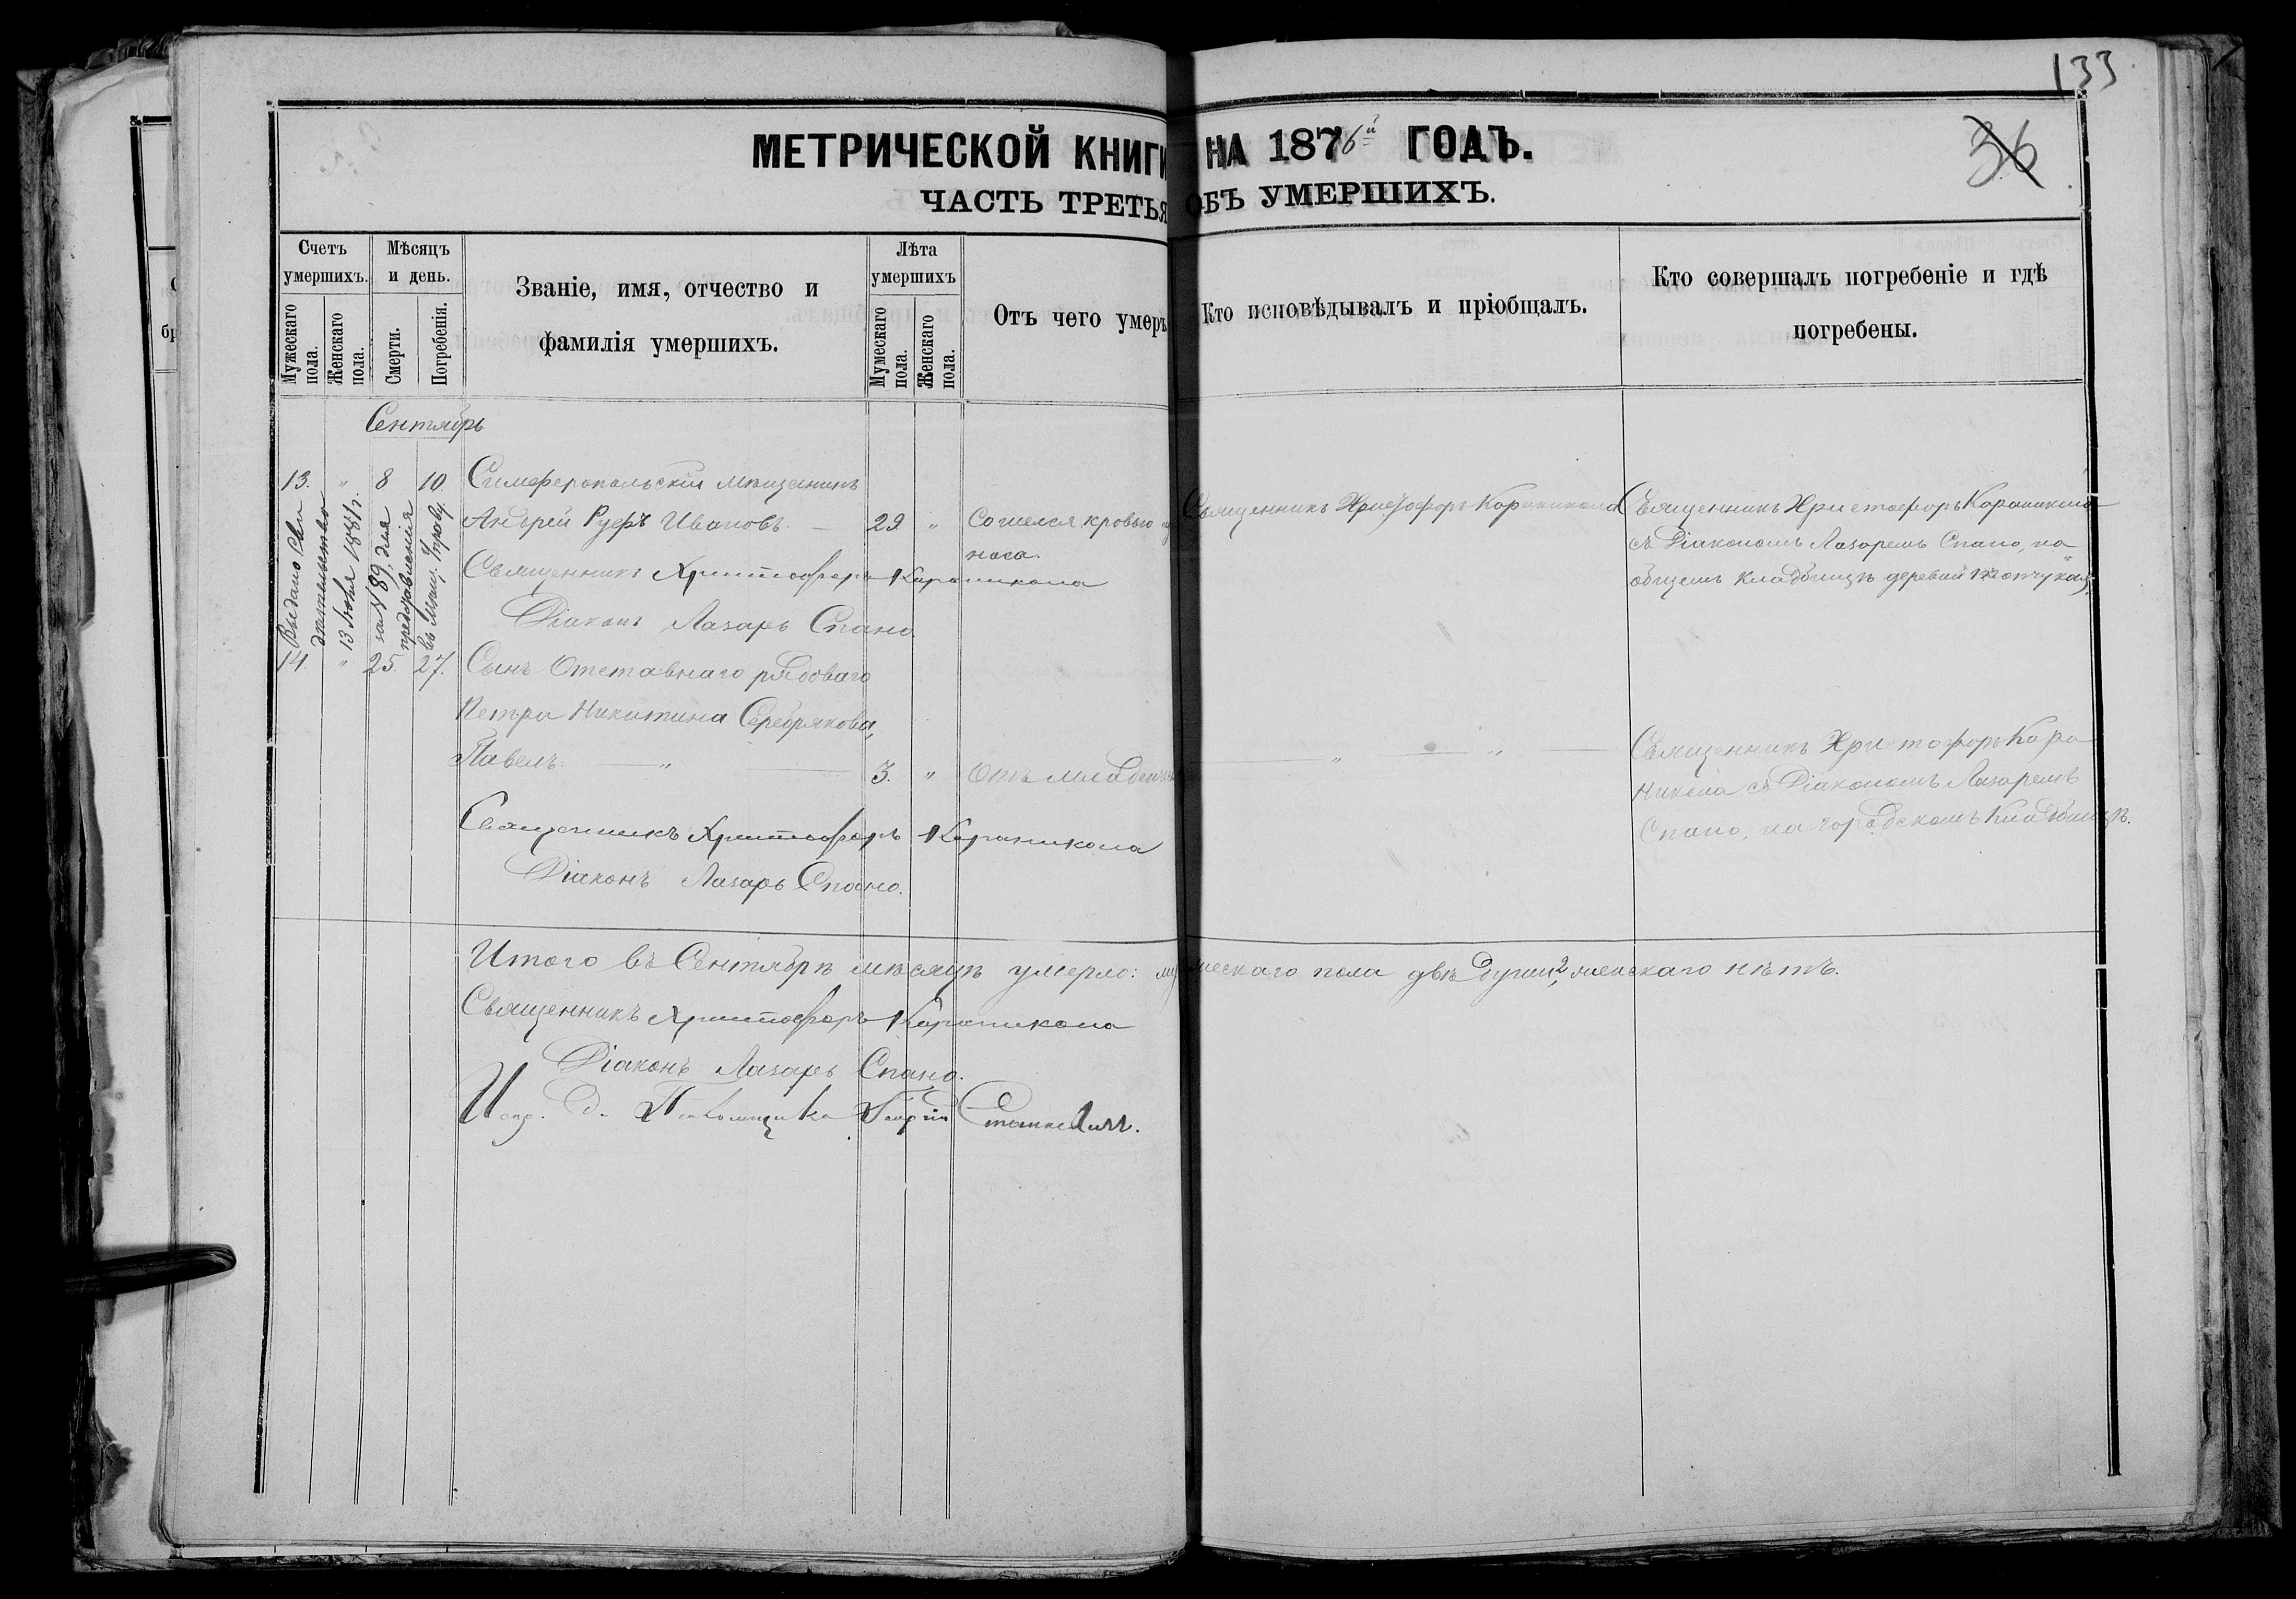 133
36
МЕТРИЧЕСКОЙ КНИГИ НА 1876й ГОДЪ.
ЧАСТЬ ТРЕТЬЯ ОБЪ УМЕРШИХЪ.
Счетъ умершихъ.
Мужескаго пола.
Женскаго пола.
Мѣсяцъ и день.
Смерти.
Погребенія.
Званіе, имя, отчество и
фамилія умершихъ.
Лѣта умершихъ
Мумескаго пола.
Женскаго пола.
Отъ чего умеръ
Кто исповѣдывалъ и пріобщалъ.
Кто совершалъ погребеніе и гдѣ
погребены.
Сентябрь
13. " 8 10. Симферопольскій мѣщанинъ
Андрей Руфъ Ивановъ. — 29 " Сошелся кровью
носа.
Священникъ Христофоръ Караникола
Діаконъ Лазарь Спано.
Священникъ Христофоръ Караникола
Священникъ Христофоръ Караникола
съ Діакономъ Лазаремъ Спано, на
общемъ кладбищѣ деревни
Выдано Сви
дѣтельство
13 1881 г.
за № 89, для
представленія
въ Мѣщ. Управу.
14. " 25. 27. Сынъ Отставнаго рядоваго
Петра Никитина Серебрякова,
Павелъ. — " — 3. " Отъ младенч
" — " —
Священникъ Христофоръ Кара
никола съ Діакономъ Лазаремъ
Спано, на городскомъ Кладбищѣ.
Священникъ Христофоръ Караникола
Діаконъ Лазарь Спано.
Итого въ Сентябрѣ мѣсяцѣ умерло: мужескаго пола двѣ души 2, женскаго нѣтъ.
Священникъ Христофоръ Караникола
Діаконъ Лазарь Спано.
Испр. д. Псаломщика Георгій